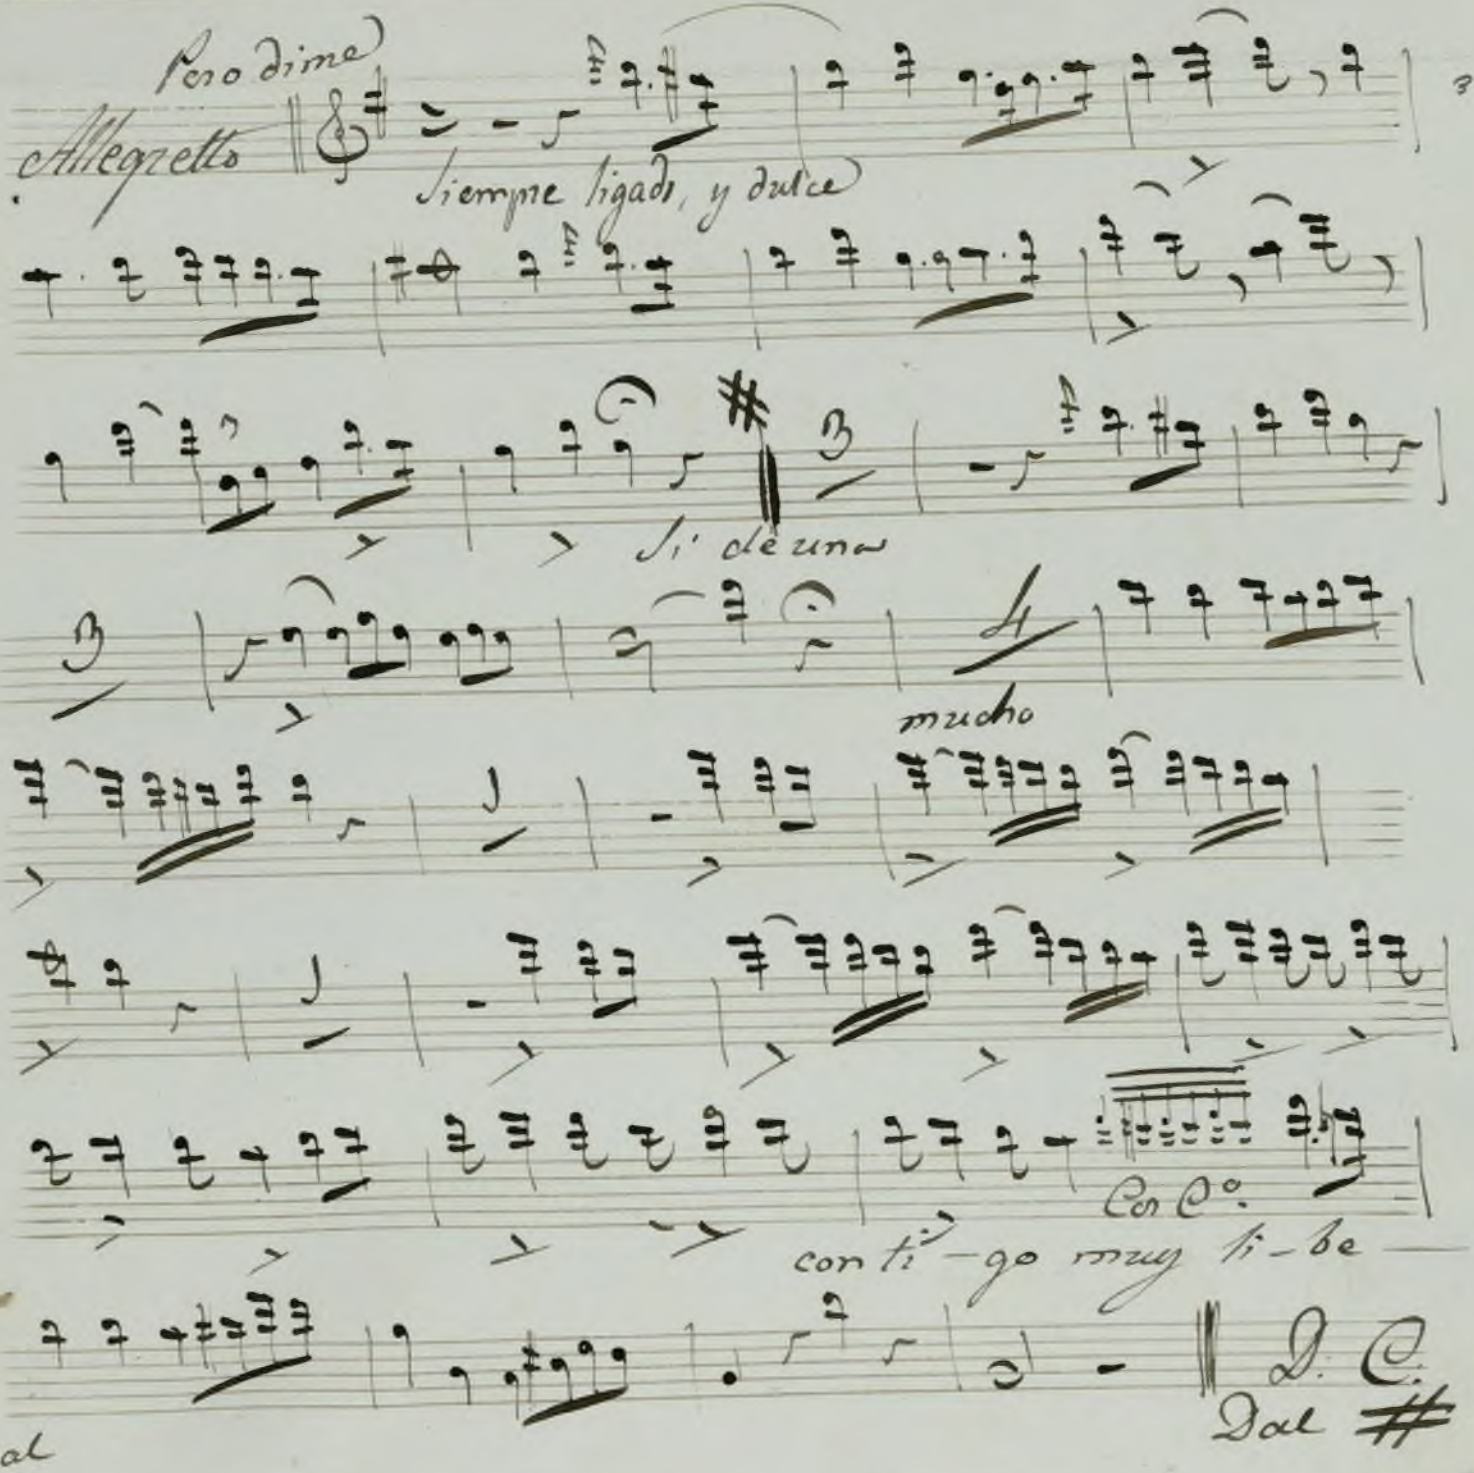 Pero dime
Allegretto
Siempre ligado, y dulce
3
Si de una
3
4
mucho
1
1
Con C.º
conti-go muy li-be
D. C.
Dal
al